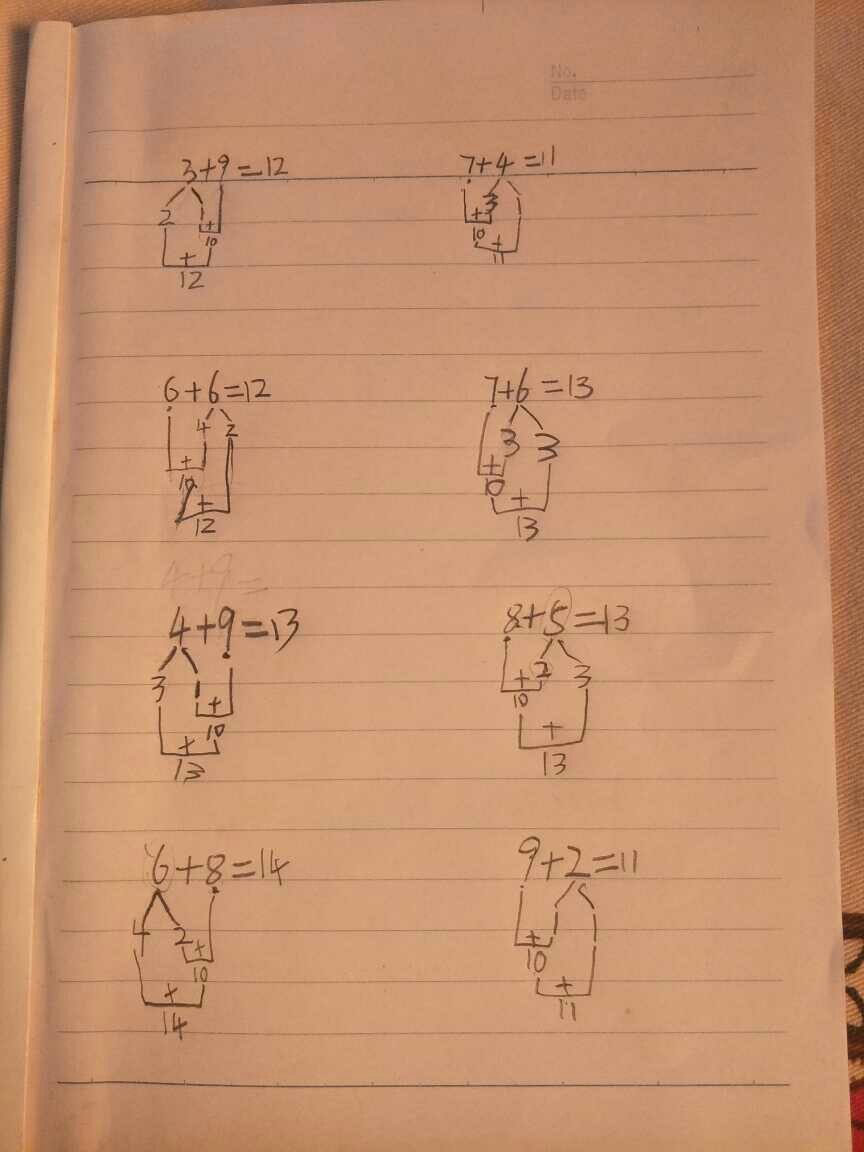 No.
Date
3+9=12 7+4=11
2 1 + 3 1
10 + 10
+ 11
12
6+6=12 7+6=13
4 2 3 3
+ +
10 10
+ +
12 13
4+9=
4+9=13 8+5=13
3 1 + 2 3
+ 10
10 +
+ 13
13
6+8=14 9+2=11
4 2 1 1
+ +
10 10
+ +
14 11